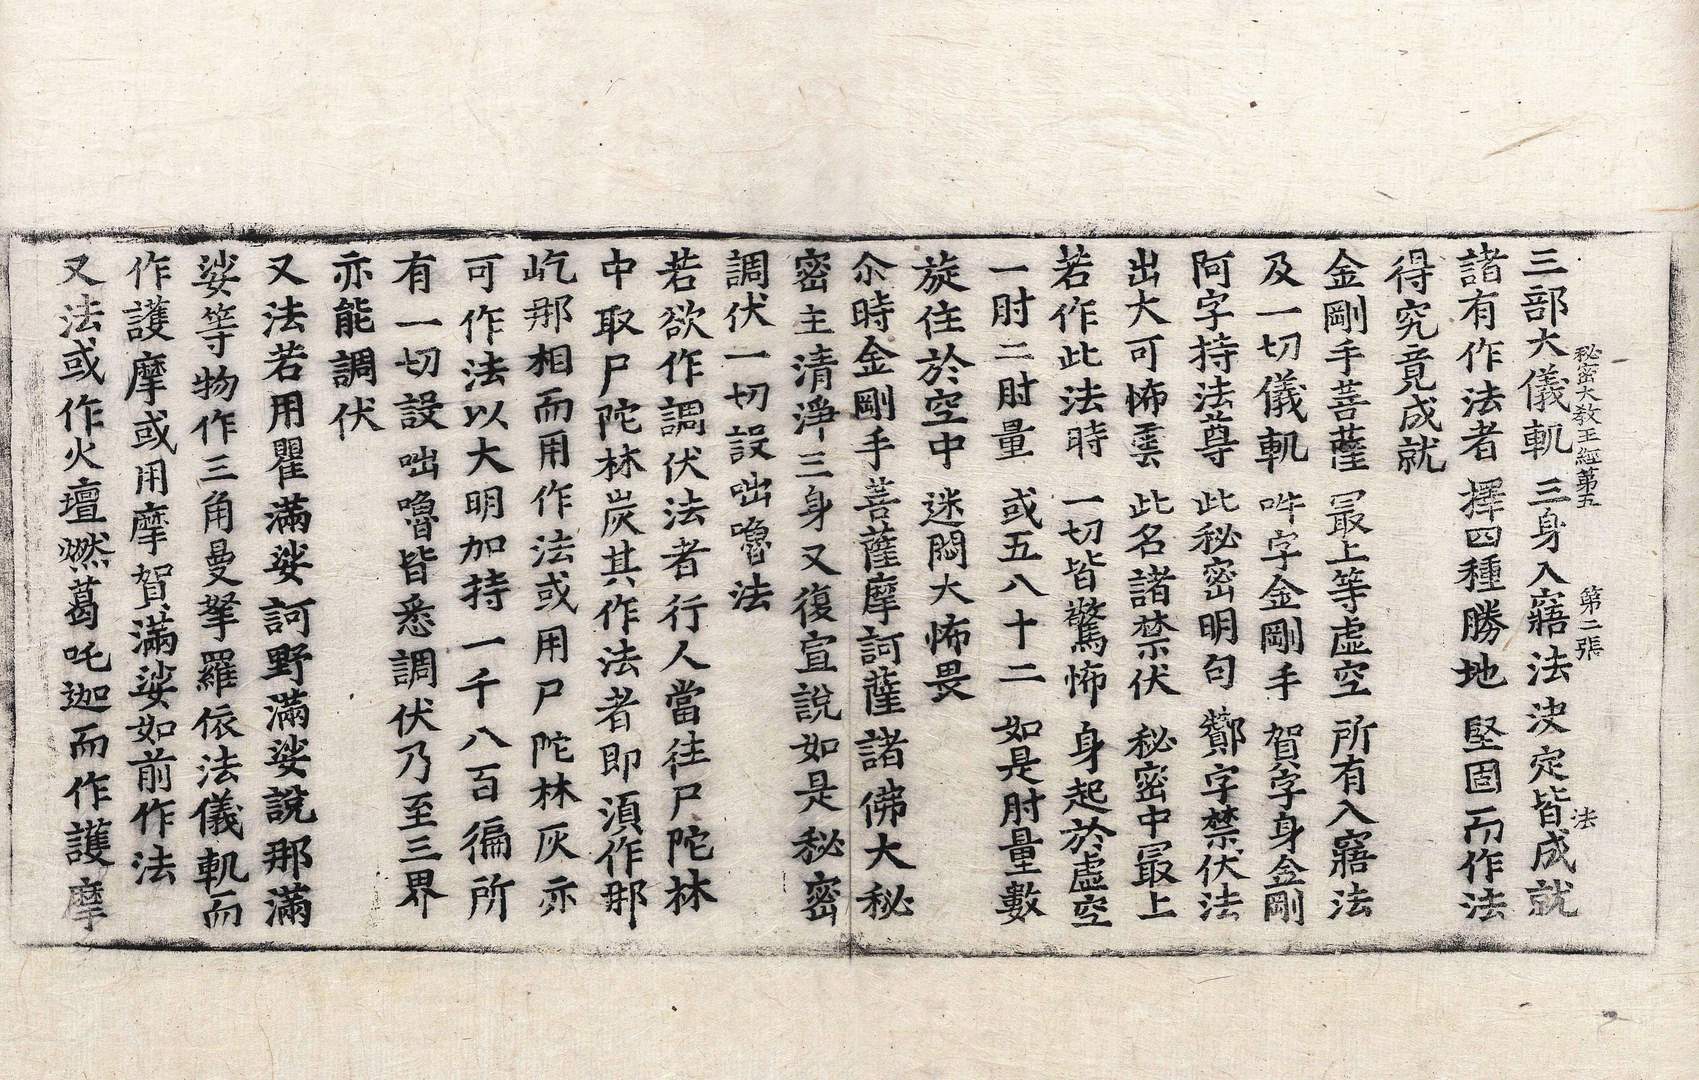 秘密大教王經第五　第二張　法
三部大儀軌　三身入寤法　決定皆成就
諸有作法者　擇四種勝地　堅固而作法
得究竟成就
金剛手菩薩　最上等虛空　所有入寤法
及一切儀軌　吽字金剛手　賀字身金剛
阿字持法尊　此秘密明句　字禁伏法
出大可怖雲　此名諸禁伏　秘密中最上
若作此法時　一切皆驚怖　身起於虛空
一肘二肘量　或五八十二　如是肘量數
旋住於空中　迷悶大怖畏
尒時金剛手菩薩摩訶薩諸佛大秘
密主清淨三身又復宣說如是秘密
調伏一切設咄嚕法
若欲作調伏法者行人當往尸陀林
中取尸陀林炭其作法者即須作那
屹那相而用作法或用尸陀林灰亦
可作法以大明加持一千八百徧所
有一切設咄嚕皆悉調伏乃至三界
亦能調伏
又法若用瞿滿娑訶野滿娑說那滿
娑等物作三角曼拏羅依法儀軌而
作護摩或用摩賀滿娑如前作法
又法或作火壇燃葛吒迦而作護摩